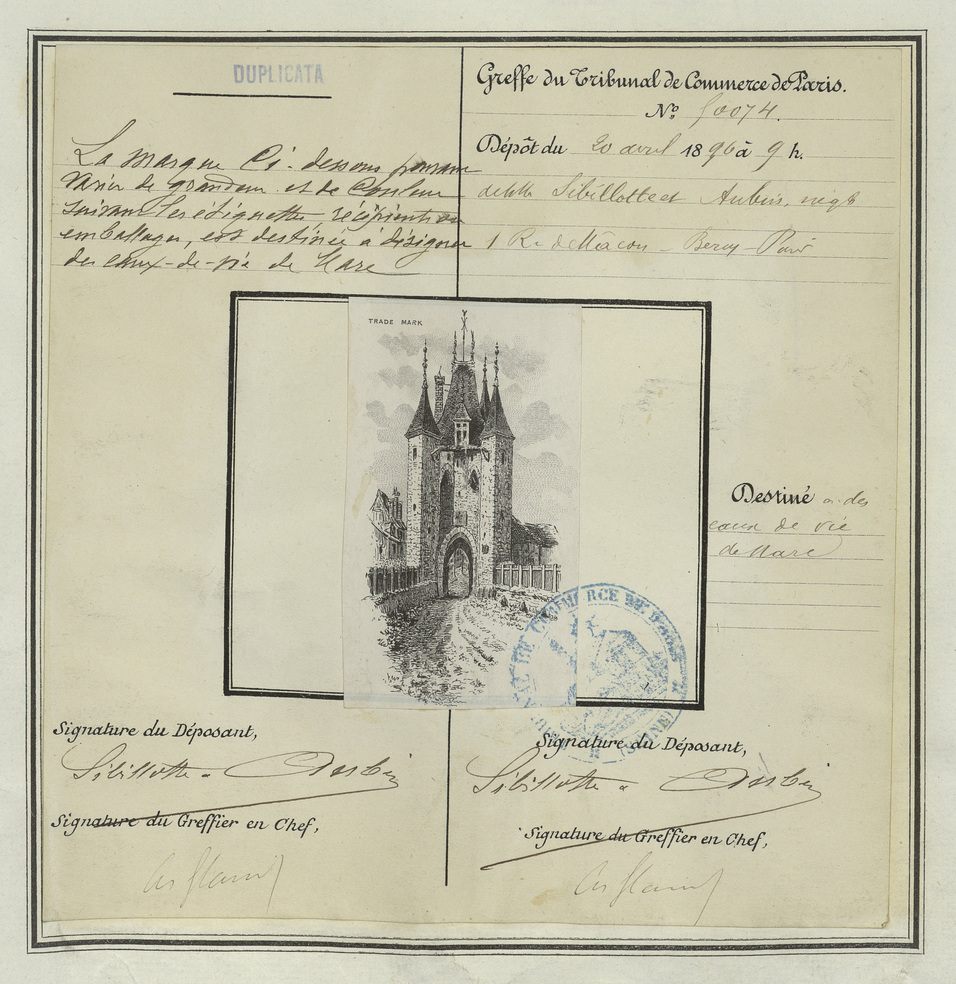 DUPLICATA
La marque Ci-dessous pouvant
varier de grandeur et de Couleur
suivant les étiquettes, récipients ou
emballages, est destinée à désigner
des eaux-de-vie de Marc
Greffe du Tribunal de Commerce de Paris.
N° 50074.
Dépôt du 20 avril 1896 à 9 h.
Sibillotte et Aubin, négts
1 R. de Mâcon - Bercy - Paris
TRADE MARK
Destiné à des
eaux de vie
de Marc
TRIBUNAL DE COMMERCE DE
Signature du Déposant,
Sibillotte & Aubin
Signature du Greffier en Chef,
Signature du Déposant,
Sibillotte & Aubin
Signature du Greffier en Chef,